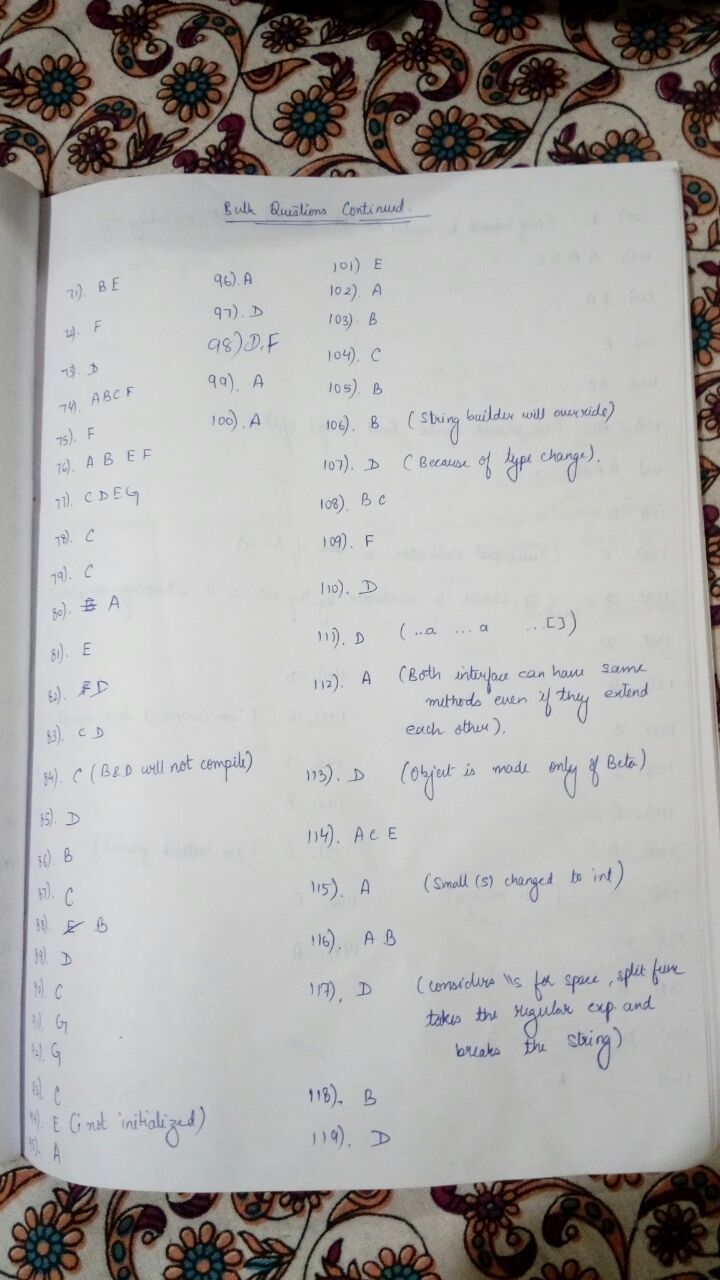 Bulk Questions Continued.
71). B E
72). F
73). D
74). A B C F
75). F
76). A B E F
77). C D E G
78). C
79). C
80). A
81). E
82). D
83). C D
84). C (B&D will not compile)
85). D
86). B
87). C
88). B
89). D
90). C
91). G
92). G
93). C
94). E (i not initialized)
95). A
96). A
97). D
98) D, F
99). A
100). A
101) E
102). A
103). B
104). C
105). B
106). B (String builder will override)
107). D (Because of type change).
108). B C
109). F
110). D
111). D (...a ...a ...[])
112). A (Both interface can have same
methods even if they extend
each other).
113). D (Object is made only of Beta)
114). A C E
115). A (Small (s) changed to int)
116). A B
117). D (considers \\s for space, split func
takes the regular exp. and
breaks the string)
118). B
119). D